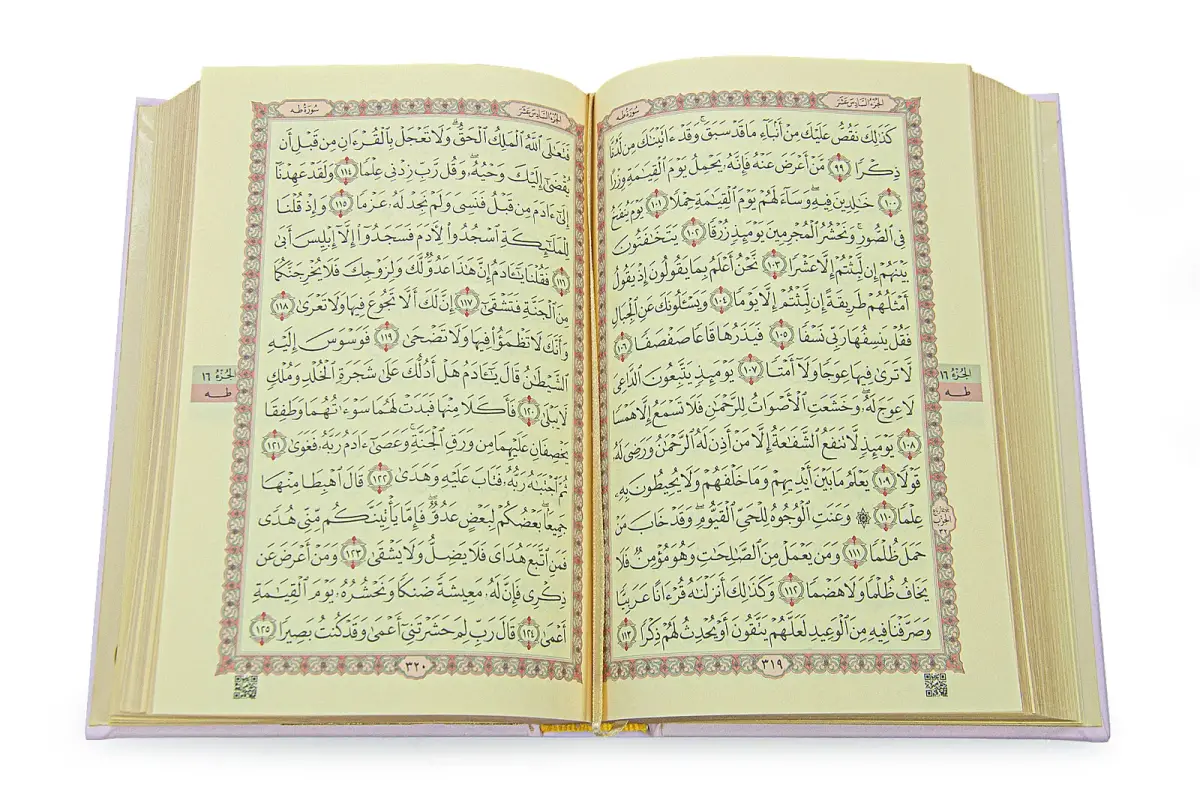 الجزء السادس عشر
سورة طه
كَذَٰلِكَ نَقُصُّ عَلَيْكَ مِنْ أَنۢبَآءِ مَا قَدْ سَبَقَ ۚ وَقَدْ ءَاتَيْنَٰكَ مِن لَّدُنَّا
ذِكْرًا ٩٩ مَّنْ أَعْرَضَ عَنْهُ فَإِنَّهُۥ يَحْمِلُ يَوْمَ ٱلْقِيَٰمَةِ وِزْرًا
١٠٠ خَٰلِدِينَ فِيهِ ۖ وَسَآءَ لَهُمْ يَوْمَ ٱلْقِيَٰمَةِ حِمْلًا ١٠١ يَوْمَ يُنفَخُ
فِى ٱلصُّورِ ۚ وَنَحْشُرُ ٱلْمُجْرِمِينَ يَوْمَئِذٍ زُرْقًا ١٠٢ يَتَخَٰفَتُونَ
بَيْنَهُمْ إِن لَّبِثْتُمْ إِلَّا عَشْرًا ١٠٣ نَّحْنُ أَعْلَمُ بِمَا يَقُولُونَ إِذْ يَقُولُ
أَمْثَلُهُمْ طَرِيقَةً إِن لَّبِثْتُمْ إِلَّا يَوْمًا ١٠٤ وَيَسْـَٔلُونَكَ عَنِ ٱلْجِبَالِ
فَقُلْ يَنسِفُهَا رَبِّى نَسْفًا ١٠٥ فَيَذَرُهَا قَاعًا صَفْصَفًا ١٠٦
لَّا تَرَىٰ فِيهَا عِوَجًا وَلَآ أَمْتًا ١٠٧ يَوْمَئِذٍ يَتَّبِعُونَ ٱلدَّاعِىَ
لَا عِوَجَ لَهُۥ ۖ وَخَشَعَتِ ٱلْأَصْوَاتُ لِلرَّحْمَٰنِ فَلَا تَسْمَعُ إِلَّا هَمْسًا
١٠٨ يَوْمَئِذٍ لَّا تَنفَعُ ٱلشَّفَٰعَةُ إِلَّا مَنْ أَذِنَ لَهُ ٱلرَّحْمَٰنُ وَرَضِىَ لَهُۥ
قَوْلًا ١٠٩ يَعْلَمُ مَا بَيْنَ أَيْدِيهِمْ وَمَا خَلْفَهُمْ وَلَا يُحِيطُونَ بِهِۦ
عِلْمًا ١١٠ ۞ وَعَنَتِ ٱلْوُجُوهُ لِلْحَىِّ ٱلْقَيُّومِ ۖ وَقَدْ خَابَ مَنْ
حَمَلَ ظُلْمًا ١١١ وَمَن يَعْمَلْ مِنَ ٱلصَّٰلِحَٰتِ وَهُوَ مُؤْمِنٌ فَلَا
يَخَافُ ظُلْمًا وَلَا هَضْمًا ١١٢ وَكَذَٰلِكَ أَنزَلْنَٰهُ قُرْءَانًا عَرَبِيًّا
وَصَرَّفْنَا فِيهِ مِنَ ٱلْوَعِيدِ لَعَلَّهُمْ يَتَّقُونَ أَوْ يُحْدِثُ لَهُمْ ذِكْرًا ١١٣
٣١٩
الجزء ١٦
طه
الحزب
٣٢
الجزء السادس عشر
سورة طه
فَتَعَٰلَى ٱللَّهُ ٱلْمَلِكُ ٱلْحَقُّ ۗ وَلَا تَعْجَلْ بِٱلْقُرْءَانِ مِن قَبْلِ أَن
يُقْضَىٰٓ إِلَيْكَ وَحْيُهُۥ ۖ وَقُل رَّبِّ زِدْنِى عِلْمًا ١١٤ وَلَقَدْ عَهِدْنَآ
إِلَىٰٓ ءَادَمَ مِن قَبْلُ فَنَسِىَ وَلَمْ نَجِدْ لَهُۥ عَزْمًا ١١٥ وَإِذْ قُلْنَا
لِلْمَلَٰٓئِكَةِ ٱسْجُدُوا۟ لِـَٔادَمَ فَسَجَدُوٓا۟ إِلَّآ إِبْلِيسَ أَبَىٰ
١١٦ فَقُلْنَا يَٰٓـَٔادَمُ إِنَّ هَٰذَا عَدُوٌّ لَّكَ وَلِزَوْجِكَ فَلَا يُخْرِجَنَّكُمَا
مِنَ ٱلْجَنَّةِ فَتَشْقَىٰٓ ١١٧ إِنَّ لَكَ أَلَّا تَجُوعَ فِيهَا وَلَا تَعْرَىٰ ١١٨
وَأَنَّكَ لَا تَظْمَؤُا۟ فِيهَا وَلَا تَضْحَىٰ ١١٩ فَوَسْوَسَ إِلَيْهِ
ٱلشَّيْطَٰنُ قَالَ يَٰٓـَٔادَمُ هَلْ أَدُلُّكَ عَلَىٰ شَجَرَةِ ٱلْخُلْدِ وَمُلْكٍ
لَّا يَبْلَىٰ ١٢٠ فَأَكَلَا مِنْهَا فَبَدَتْ لَهُمَا سَوْءَٰتُهُمَا وَطَفِقَا
يَخْصِفَانِ عَلَيْهِمَا مِن وَرَقِ ٱلْجَنَّةِ ۚ وَعَصَىٰٓ ءَادَمُ رَبَّهُۥ فَغَوَىٰ ١٢١
ثُمَّ ٱجْتَبَٰهُ رَبُّهُۥ فَتَابَ عَلَيْهِ وَهَدَىٰ ١٢٢ قَالَ ٱهْبِطَا مِنْهَا
جَمِيعًۢا ۖ بَعْضُكُمْ لِبَعْضٍ عَدُوٌّ ۖ فَإِمَّا يَأْتِيَنَّكُم مِّنِّى هُدًى
فَمَنِ ٱتَّبَعَ هُدَاىَ فَلَا يَضِلُّ وَلَا يَشْقَىٰ ١٢٣ وَمَنْ أَعْرَضَ عَن
ذِكْرِى فَإِنَّ لَهُۥ مَعِيشَةً ضَنكًا وَنَحْشُرُهُۥ يَوْمَ ٱلْقِيَٰمَةِ
أَعْمَىٰ ١٢٤ قَالَ رَبِّ لِمَ حَشَرْتَنِىٓ أَعْمَىٰ وَقَدْ كُنتُ بَصِيرًا ١٢٥
٣٢٠
الجزء ١٦
طه